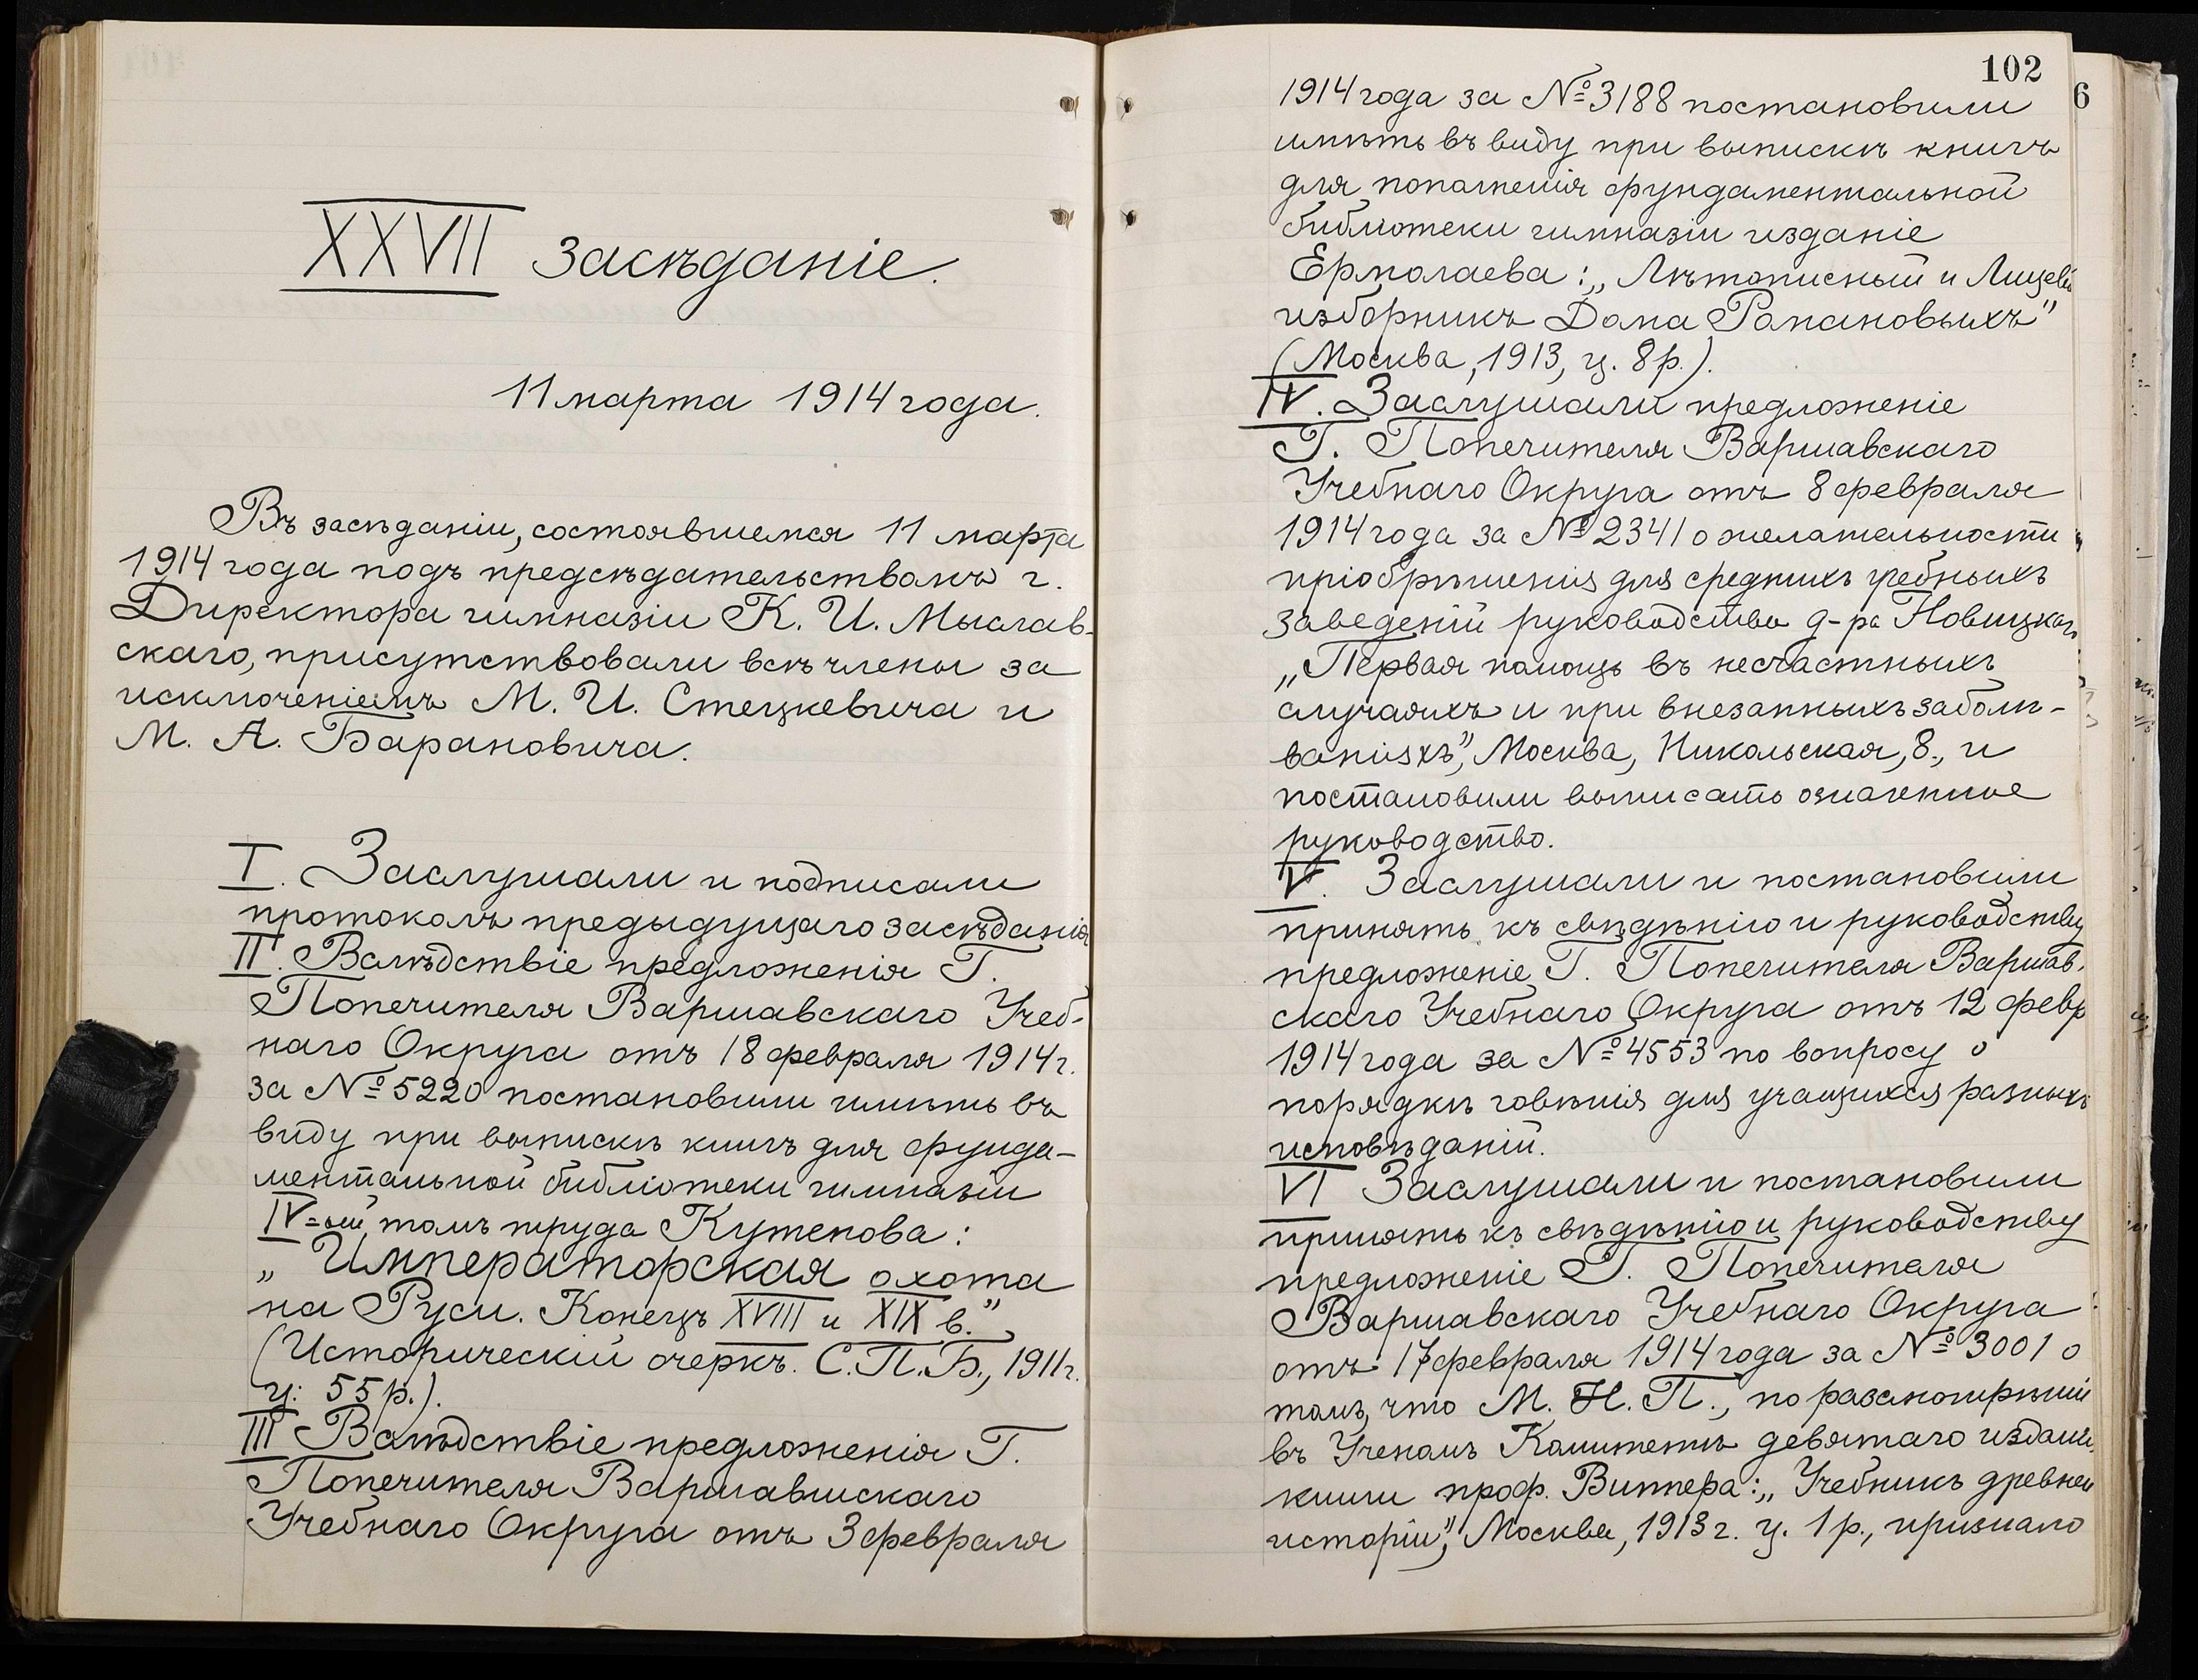 XXVII засѣданіе.
11 марта 1914 года.
Въ засѣданіи, состоявшемся 11 марта
1914 года подъ предсѣдательствомъ г.
Директора гимназіи К. И. Мыслав-
скаго, присутствовали всѣ члены за
исключеніемъ М. И. Стецкевича и
М. А. Барановича.
I. Заслушали и подписали
протоколъ предыдущаго засѣданія
II. Вслѣдствіе предложенія Г.
Попечителя Варшавскаго Учеб-
наго Округа отъ 18 февраля 1914 г.
за № 5220 постановили имѣть въ
виду при выпискѣ книгъ для фунда-
ментальной библіотеки гимназіи
IV=ый томъ труда Кутепова:
„Императорская охота
на Руси. Конецъ XVIII и XIX в."
(Историческій очеркъ. С.П.Б., 1911 г.
ц: 55 р.).
III Вслѣдствіе предложенія Г.
Попечителя Варшавшскаго
Учебнаго Округа отъ 3 февраля
102
6
1914 года за № 3188 постановили
имѣть въ виду при выпискѣ книгъ
для пополненія фундаментальной
библіотеки гимназіи изданіе
Ермолаева: „Лѣтописный и Лицевый
изборникъ Дома Романовыхъ"
(Москва, 1913, ц. 8 р.).
IV. Заслушали предложеніе
Г. Попечителя Варшавскаго
Учебнаго Округа отъ 8 февраля
1914 года за № 2341 о желательности
пріобрѣтенія для среднихъ учебныхъ
заведеній руководства д-ра Новицкаго
„Первая помощь въ несчастныхъ
случаяхъ и при внезапныхъ заболѣ-
ваніяхъ", Москва, Никольская, 8., и
постановили выписать означенное
руководство.
V. Заслушали и постановили
принять къ свѣдѣнію и руководству
предложеніе Г. Попечителя Варшав-
скаго Учебнаго Округа отъ 12 февр
1914 года за № 4553 по вопросу о
порядкѣ говѣнія для учащихся разныхъ
исповѣданій.
VI Заслушали и постановили
принять къ свѣдѣнію и руководству
предложеніе Г. Попечителя
Варшавскаго Учебнаго Округа
отъ 17 февраля 1914 года за № 3001 о
томъ, что М. Н. П., по разсмотрѣніи
въ Ученомъ Комитетѣ девятаго изданія
книги проф. Виппера: „Учебникъ древней
исторіи", Москва, 1913 г. ц. 1 р., признано